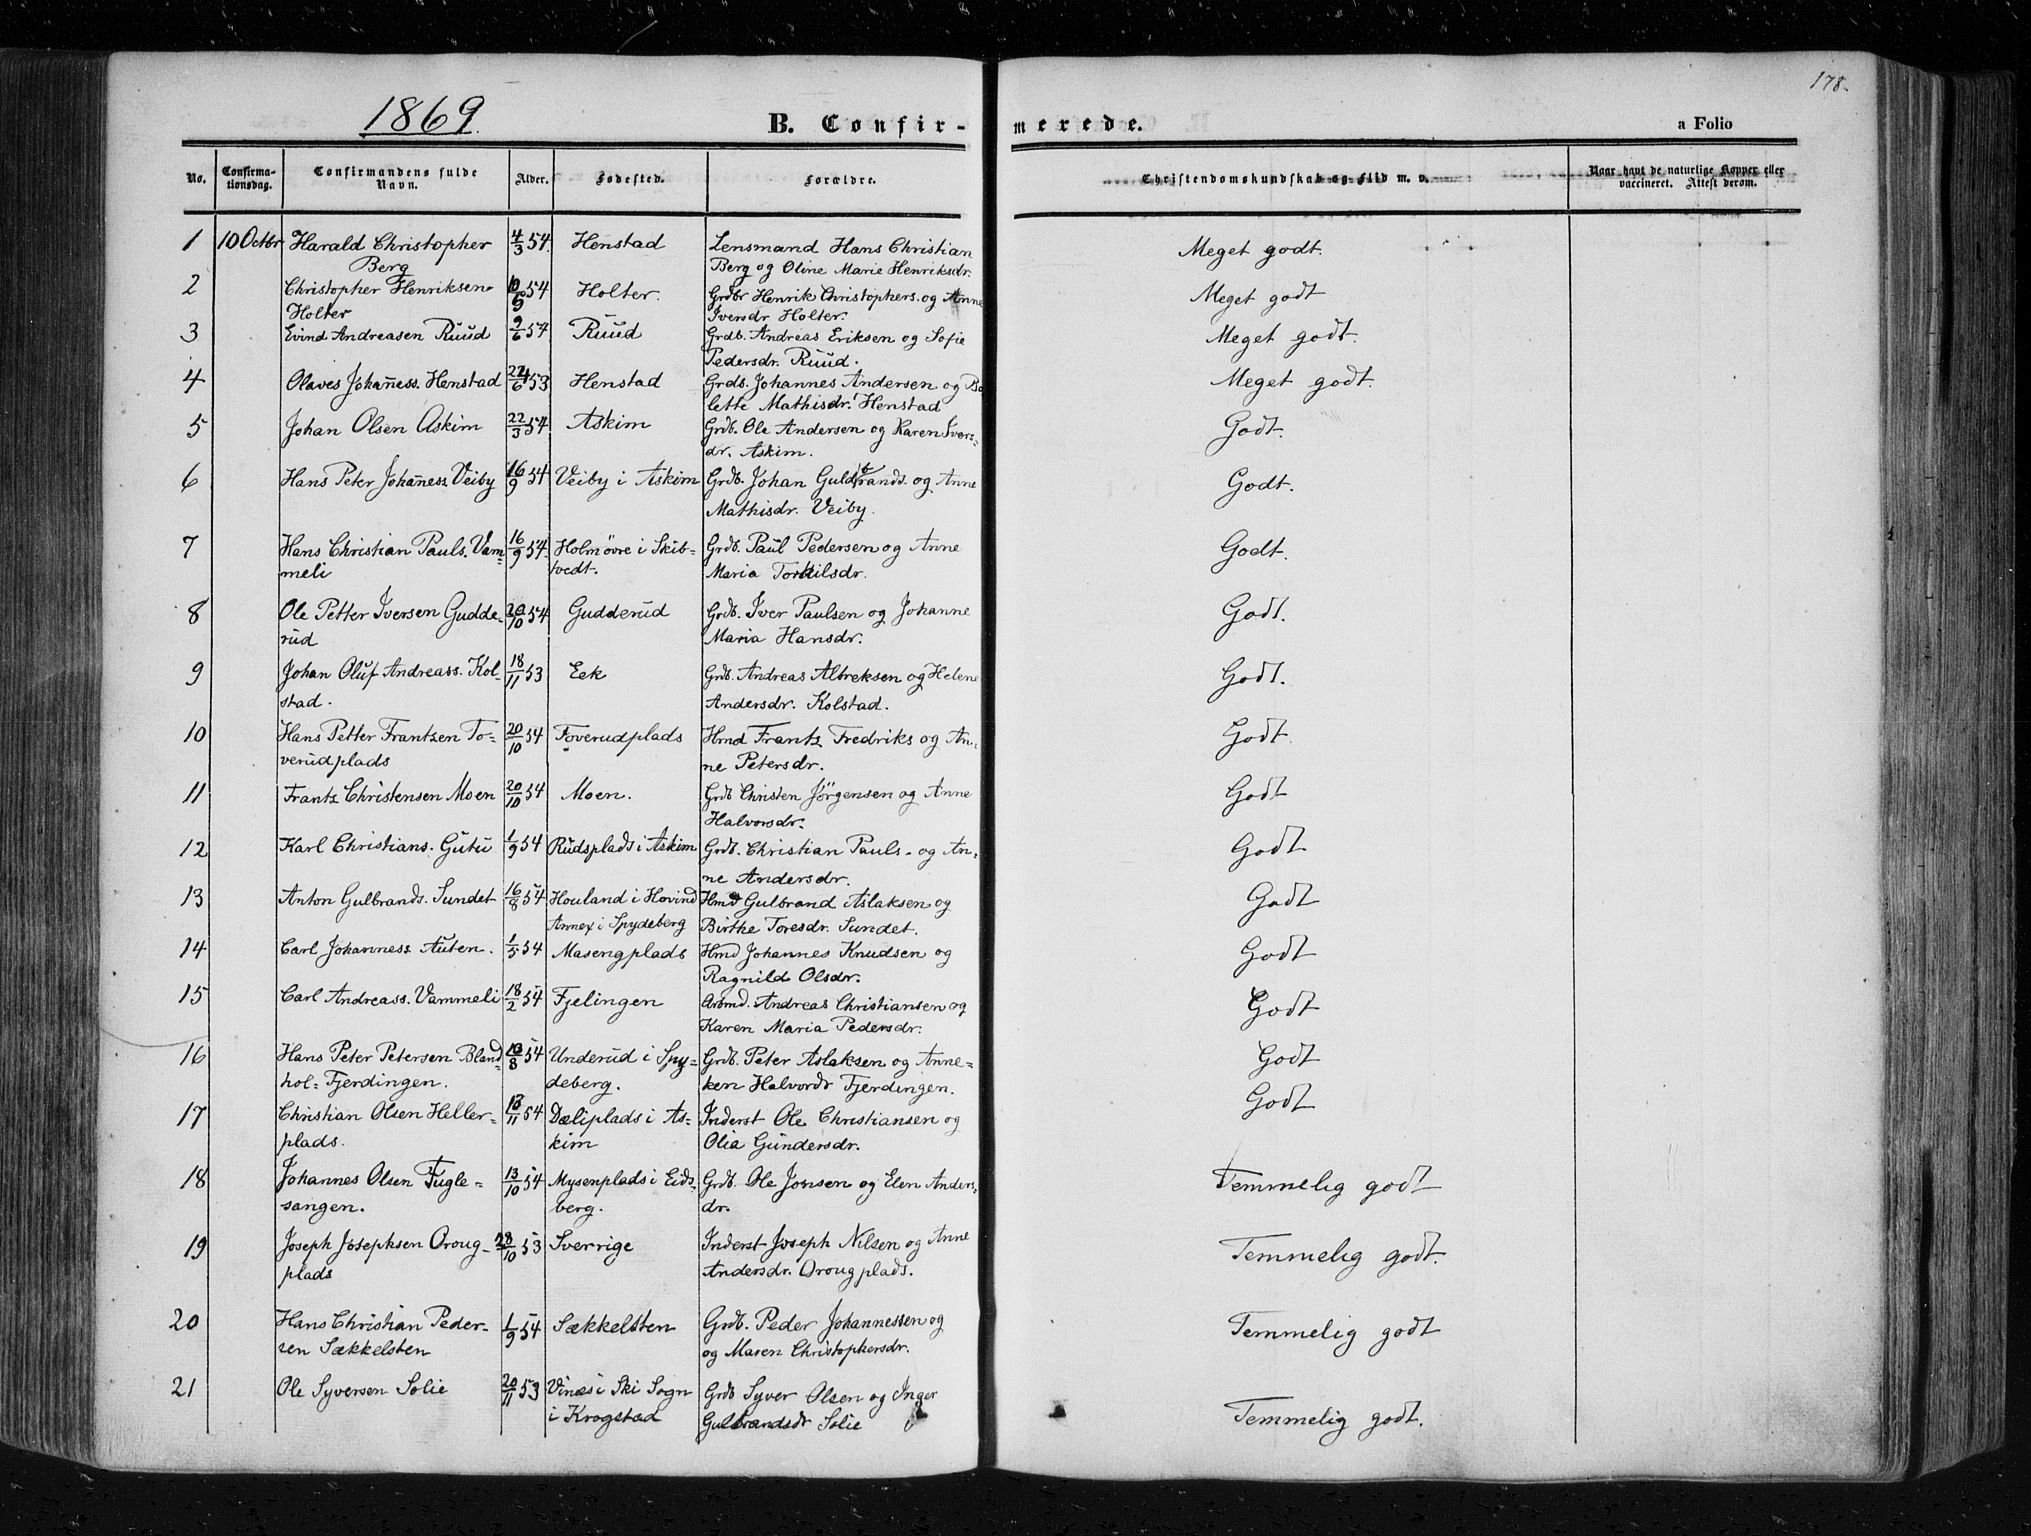 178.
1869.
B. Confirmerede.
a Folio
No.
Confirmationsdag.
Confirmandens fulde Navn.
Alder.
Fødested.
Forældre.
Christendomskundskab og Flid m. v.
Naar havt de naturlige Kopper eller vaccineret. Attest derom.
1 10 Octbr Harald Christopher 4/3 54. Henstad Lensmand Hans Christian Meget godt.
Berg Berg og Oline Marie Henriksdr.
2 Christopher Henriksen 54 Holter. Grdbr Henrik Christophers. og Anne Meget godt
Holter Iversdr Holter.
3 Evind Andreasen Ruud 54. Ruud Grdb. Andreas Eriksen og Sofie Meget godt.
Pedersdr. Ruud.
4 Olaves Johañess. Henstad 53 Henstad Grds. Johannes Andersen og Bo- Meget godt.
lette Mathisdr. Henstad
5 Johan Olsen Askim 22/3 54. Askim Grdb. Ole Andersen og Karen Ivers- Godt.
dr. Askim.
6 Hans Peter Johañess. Veiby 16/9 54 Veiby i Askim Grdb. Johan Guldbrands. og Anne Godt.
Mathisdr. Veiby.
7 Hans Christian Pauls. Vam- 16/9 54. Holmøvre i Skib- Grdb. Paul Pedersen og Anne Godt.
meli tvedt. Maria Torkilsdr.
8 Ole Petter Iversen Gudde- 20/10 54 Gudderud Grdb. Iver Paulsen og Johanne Godt.
rud Maria Hansdr.
9 Johan Oluf Andreass. Kol- 18/11 53 Eek Grdb. Andreas Albreksen og Helene Godt.
stad. Andersdr. Kolstad.
10 Hans Petter Frantzen To- 20/10 54 Toverudplads Hmd Frantz Fredriks og An- Godt.
verudplads ne Petersdr.
11 Frantz Christensen Moen 20/10 54 Moen. Grdb Christen Jörgensen og Anne Godt
Halvorsdr.
12 Karl Christians. Gutu 1/9 54 Rudsplads i Askim Grdb. Christian Pauls- og An- Godt
ne Andersdr.
13 Anton Gulbrands. Sundet 16/8 54 Houland i Hovind Hmd Gulbrand Aslaksen og Godt
Annex i Spydeberg Birthe Toresdr. Sundet.
14 Carl Johanness. Auten. 1/5 54 Masengplads Hmd Johannes Knudsen og Godt
Ragnild Olsdr.
15 Carl Andreass. Vammeli 18/2 54 Fjelingen Arbmd. Andreas Christiansen og Godt
Karen Maria Pedersdr.
16 Hans Peter Petersen Bland- 54 Underud i Spy- Grdb. Peter Aslaksen og Anne- Godt
hol= Fjerdingen. deberg. ken Halvordr Fjerdingen.
17 Christian Olsen Heller- 54 Dæliplads i As- Inderst Ole Christiansen og Godt
plads. kim Olia Gundersdr.
18 Johannes Olsen Fugle- 13/10 54 Mysenplads i Eids- Grdb. Ole Jonsen og Elen Anders- Temmelig godt
sangen. berg. dr.
19 Joseph Josephsen Oroug- 28/10 53 Sverrige Inderst Joseph Nilsen og Anne Temmelig godt.
plads Andersdr. Orougplads.
20 Hans Christian Peder- 1/9 54 Sækkelsten Grdb. Peder Johannessen og Temmelig godt
sen Sækkelsten og Maren Christophersdr.
21 Ole Syversen Solie 20/11 53 Vinæs i Ski Sogn Grdb Syver Olsen og Inger Temmelig godt.
i Krogstad Gulbrandsdr Solie